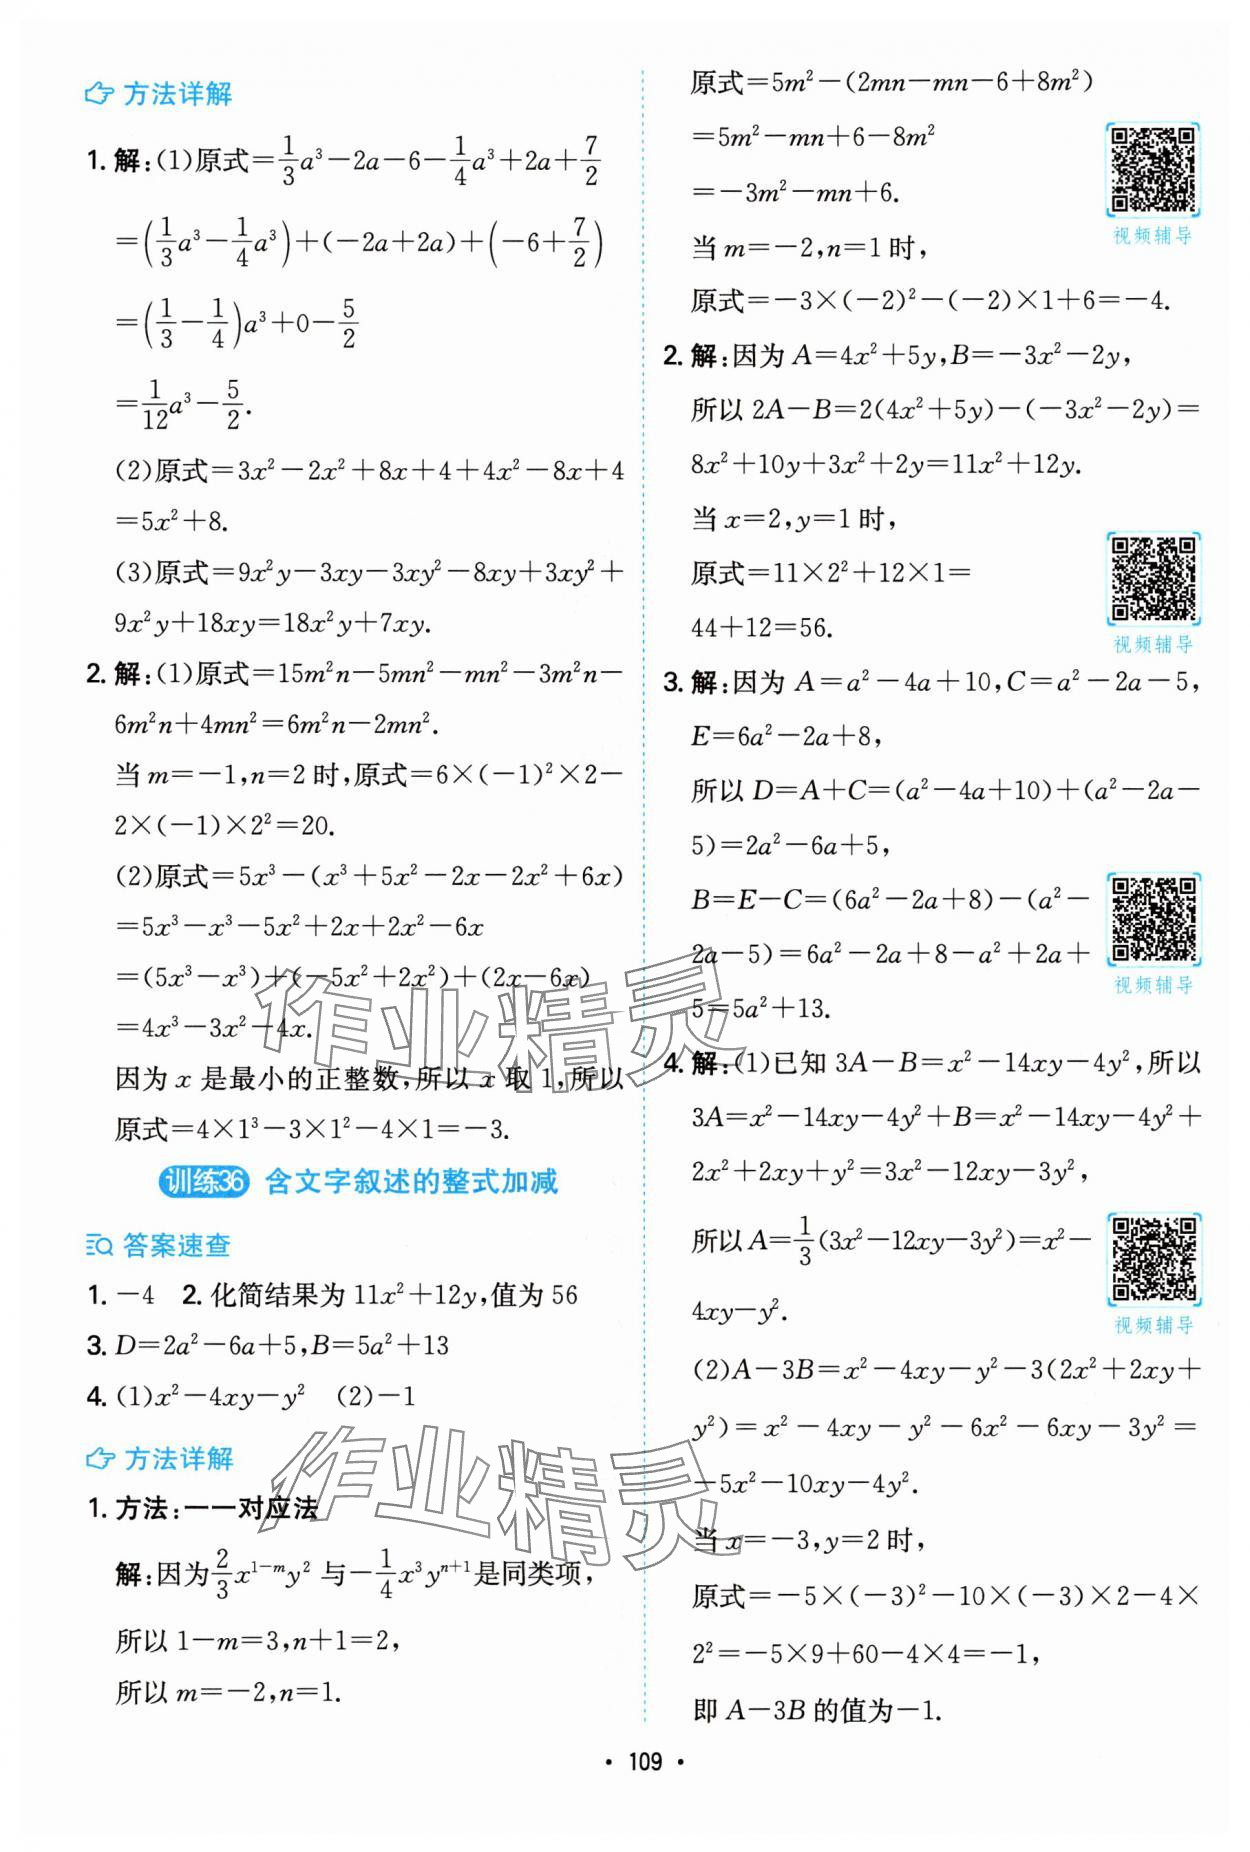 方法详解
1. 解:(1)原式=1/3a³-2a-6-1/4a³+2a+7/2
=(1/3a³-1/4a³)+(-2a+2a)+(-6+7/2)
=(1/3-1/4)a³+0-5/2
=1/12a³-5/2.
(2)原式=3x²-2x²+8x+4+4x²-8x+4
=5x²+8.
(3)原式=9x²y-3xy-3xy²-8xy+3xy²+
9x²y+18xy=18x²y+7xy.
2. 解:(1)原式=15m²n-5mn²-mn²-3m²n-
6m²n+4mn²=6m²n-2mn².
当m=-1,n=2时,原式=6×(-1)²×2-
2×(-1)×2²=20.
(2)原式=5x³-(x³+5x²-2x-2x²+6x)
=5x³-x³-5x²+2x+2x²-6x
=(5x³-x³)+(-5x²+2x²)+(2x-6x)
=4x³-3x²-4x.
因为x是最小的正整数,所以x取1,所以
原式=4×1³-3×1²-4×1=-3.
训练36 含文字叙述的整式加减
答案速查
1. -4 2. 化简结果为11x²+12y,值为56
3. D=2a²-6a+5,B=5a²+13
4. (1)x²-4xy-y² (2)-1
方法详解
1. 方法:一一对应法
解:因为2/3x¹⁻ᵐy²与-1/4x³yⁿ⁺¹是同类项,
所以1-m=3,n+1=2,
所以m=-2,n=1.
原式=5m²-(2mn-mn-6+8m²)
=5m²-mn+6-8m²
=-3m²-mn+6.
视频辅导
当m=-2,n=1时,
原式=-3×(-2)²-(-2)×1+6=-4.
2. 解:因为A=4x²+5y,B=-3x²-2y,
所以2A-B=2(4x²+5y)-(-3x²-2y)=
8x²+10y+3x²+2y=11x²+12y.
当x=2,y=1时,
原式=11×2²+12×1=
44+12=56.
视频辅导
3. 解:因为A=a²-4a+10,C=a²-2a-5,
E=6a²-2a+8,
所以D=A+C=(a²-4a+10)+(a²-2a-
5)=2a²-6a+5,
B=E-C=(6a²-2a+8)-(a²-
2a-5)=6a²-2a+8-a²+2a+
5=5a²+13.
视频辅导
4. 解:(1)已知3A-B=x²-14xy-4y²,所以
3A=x²-14xy-4y²+B=x²-14xy-4y²+
2x²+2xy+y²=3x²-12xy-3y²,
所以A=1/3(3x²-12xy-3y²)=x²-
4xy-y².
视频辅导
(2)A-3B=x²-4xy-y²-3(2x²+2xy+
y²)=x²-4xy-y²-6x²-6xy-3y²=
-5x²-10xy-4y².
当x=-3,y=2时,
原式=-5×(-3)²-10×(-3)×2-4×
2²=-5×9+60-4×4=-1,
即A-3B的值为-1.
作业精灵
作业精灵
· 109 ·